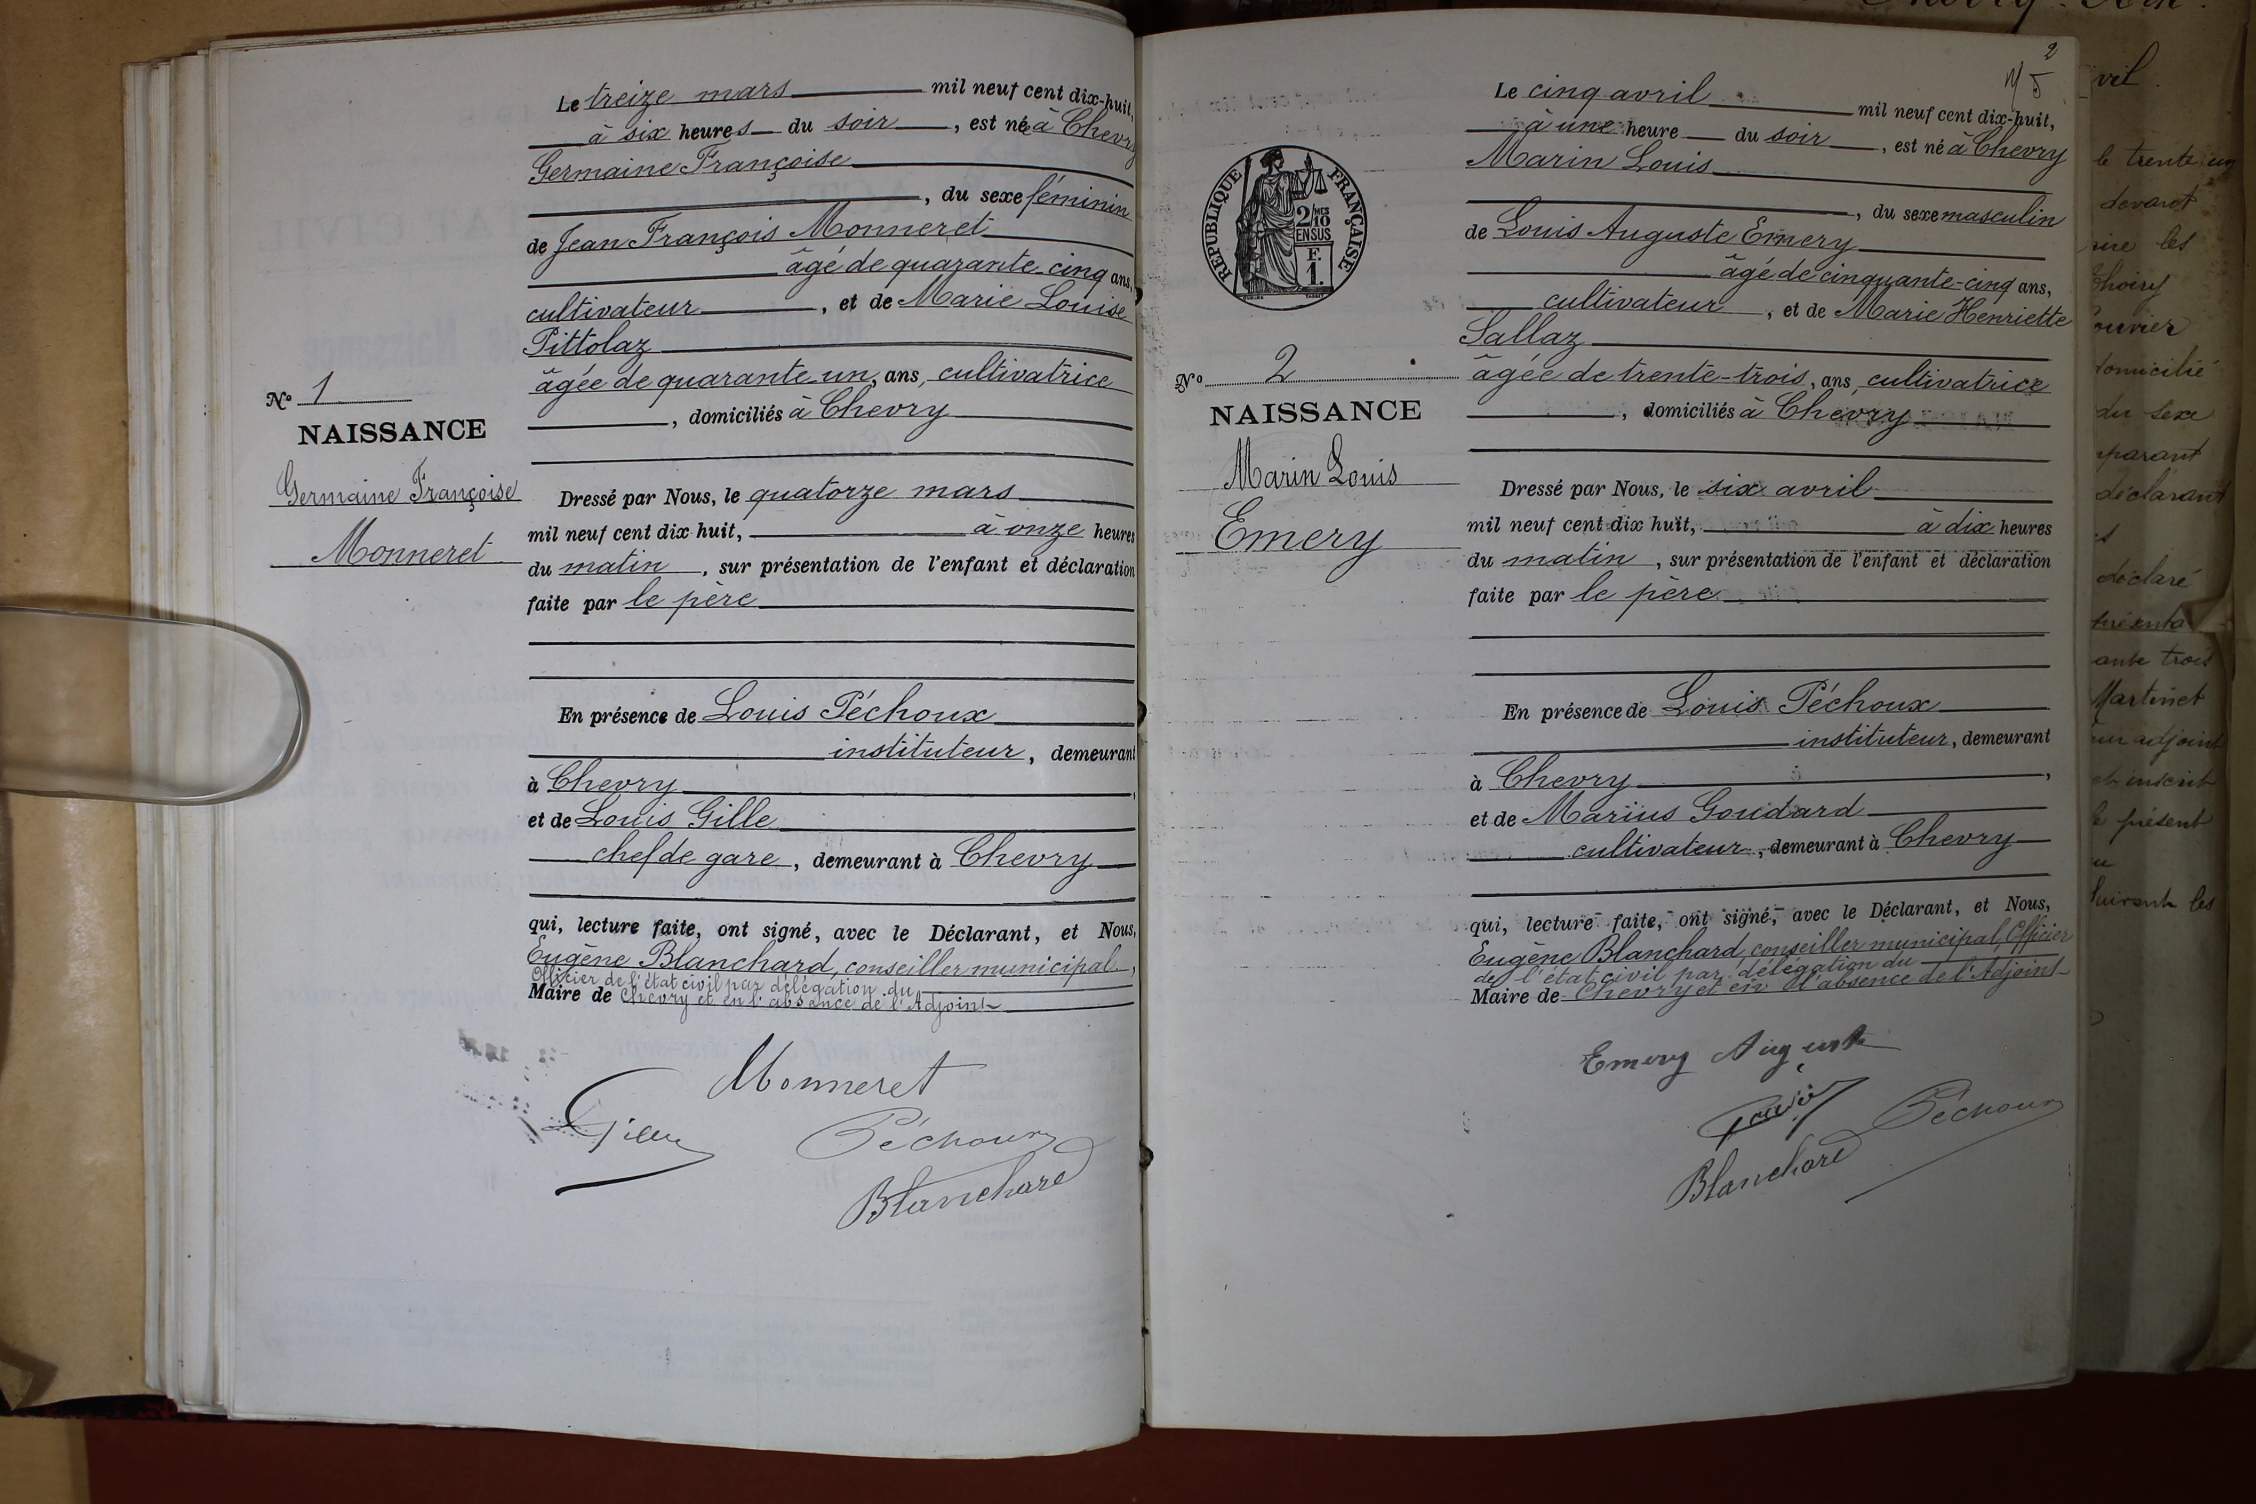 Le treize mars mil neuf cent dix-huit,
à six heures du soir, est née à Chevry
Germaine Françoise
, du sexe féminin
de Jean François Monneret
âgé de quarante cinq ans,
cultivateur, et de Marie Louise
Pittolaz
âgée de quarante un, ans, cultivatrice
, domiciliés à Chevry
No 1
NAISSANCE
Germaine Françoise
Monneret
Dressé par Nous, le quatorze mars
mil neuf cent dix huit, à onze heures
du matin, sur présentation de l'enfant et déclaration
faite par le père
En présence de Louis Péchoux
instituteur, demeurant
à Chevry,
et de Louis Gille
chef de gare, demeurant à Chevry
qui, lecture faite, ont signé, avec le Déclarant, et Nous,
Eugène Blanchard, conseiller municipal,
Officier de l'état civil par délégation du
Maire de Chevry et en l'absence de l'Adjoint
Monneret
Gille
Péchoux
Blanchard
2
Le cinq avril mil neuf cent dix-huit,
à une heure du soir, est né à Chevry
Marin Louis
, du sexe masculin
de Louis Auguste Emery
âgé de cinquante-cinq ans,
cultivateur, et de Marie Henriette
Sallaz
âgée de trente-trois, ans, cultivatrice
, domiciliés à Chevry
RÉPUBLIQUE FRANÇAISE
2/MES
10
EN SUS
F.
1.
No 2
NAISSANCE
Marin Louis
Emery
Dressé par Nous, le six avril
mil neuf cent dix huit, à dix heures
du matin, sur présentation de l'enfant et déclaration
faite par le père
En présence de Louis Péchoux
instituteur, demeurant
à Chevry,
et de Marius Goudard
cultivateur, demeurant à Chevry
qui, lecture faite, ont signé, avec le Déclarant, et Nous,
Eugène Blanchard, conseiller municipal, Officier
de l'état civil par délégation du
Maire de Chevry et en l'absence de l'Adjoint
Emery Auguste
Péchoux
Blanchard
le trente un
devant
les
Thoiry
domicilié
du sexe
déclarant
déclaré
trois
Martinet
adjoint
et inscrit
le présent
les